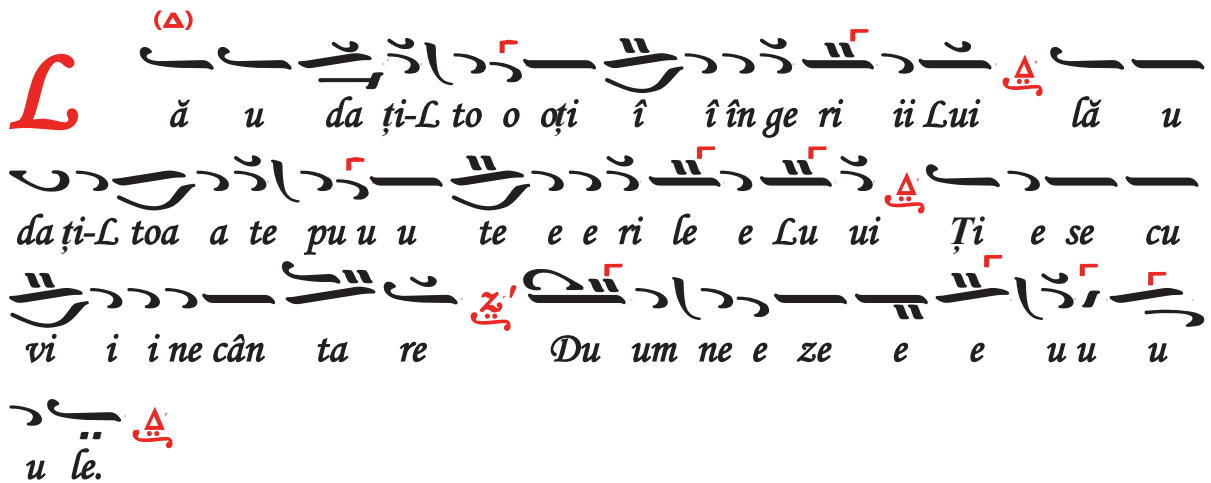 (Δ)
L ă u da ți-L to o oți î î în ge ri ii Lui Δ lă u
da ți-L toa a te pu u u te e e ri le e Lu ui Δ Ți e se cu
vi i i ne cân ta re z' Du um ne e ze e e u u u
u le. Δ